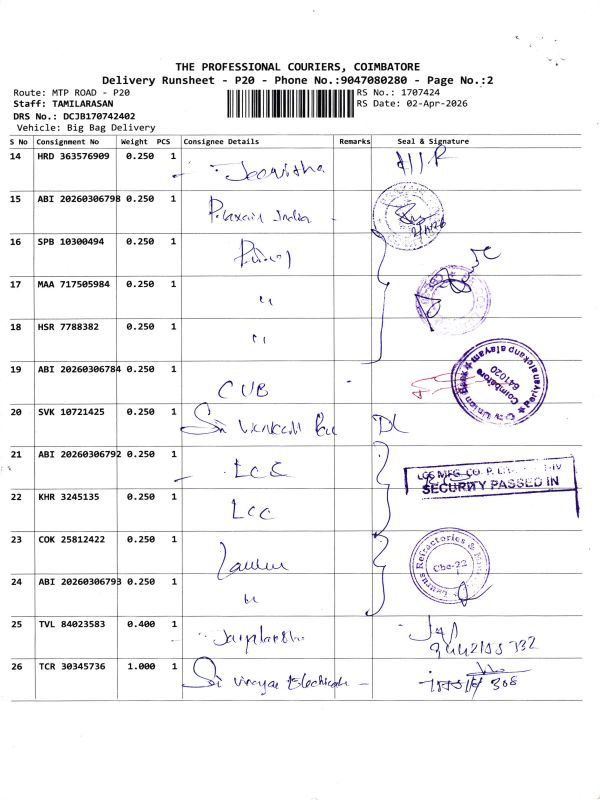 THE PROFESSIONAL COURIERS, COIMBATORE
Delivery Runsheet - P20 - Phone No.:9047080280 - Page No.:2
Route: MTP ROAD - P20 RS No.: 1707424
Staff: TAMILARASAN RS Date: 02-Apr-2026
DRS No.: DCJB170742402
Vehicle: Big Bag Delivery
S No Consignment No Weight PCS Consignee Details Remarks Seal & Signature
14 HRD 363576909 0.250 1
15 ABI 20260306798 0.250 1 India
16 SPB 10300494 0.250 1
17 MAA 717505984 0.250 1 "
18 HSR 7788382 0.250 1 "
19 ABI 20260306784 0.250 1 CUB
City Union Bank Periyanaickenpalayam Coimbatore 641020
20 SVK 10721425 0.250 1 Sri
21 ABI 20260306792 0.250 1 LCC
SECURITY PASSED IN
22 KHR 3245135 0.250 1 LCC
23 COK 25812422 0.250 1
Cbe-22
24 ABI 20260306793 0.250 1 "
25 TVL 84023583 0.400 1
26 TCR 30345736 1.000 1 Sri Vinayaga Electricals